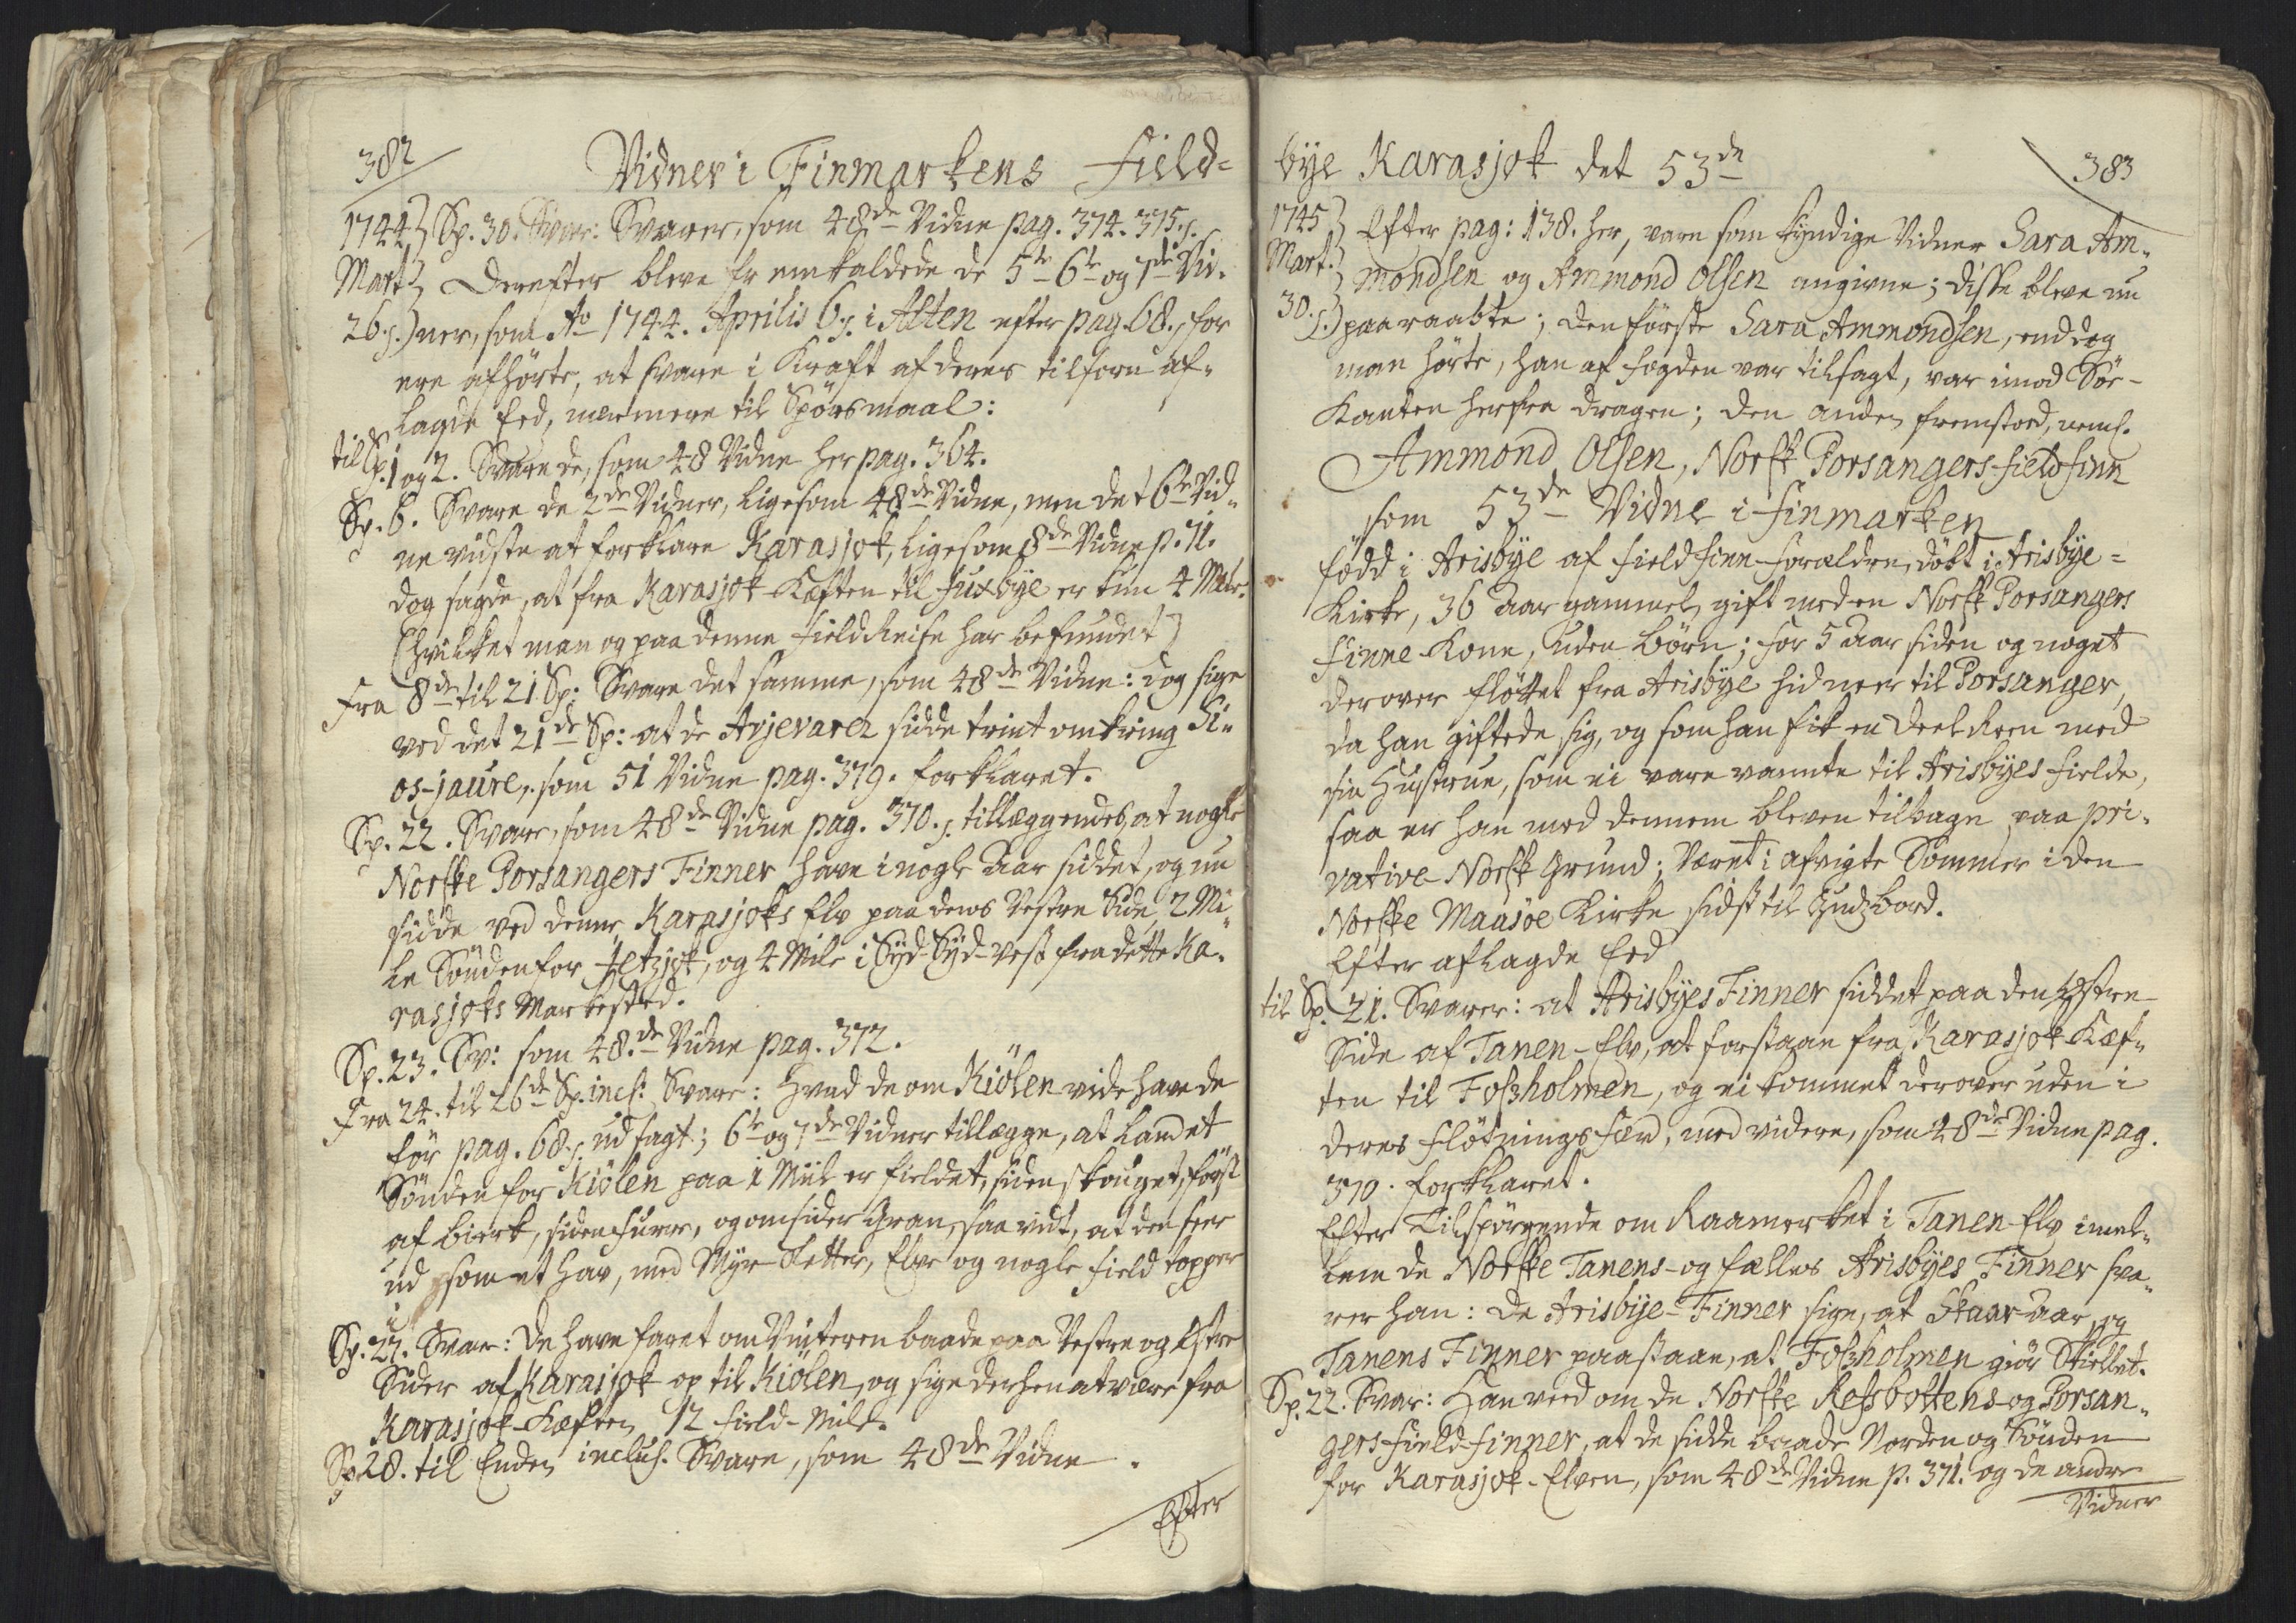 382
Vidner i Finmarkens Field-
1744 } Sp. 30. Svar: Svarer, som 48de Vidne pag. 374. 375.
Mart } Derefter bleve fremkaldede de 5te 6te og 7de Vid-
26. } ner, som Ao 1744. Aprilis 6. i Alten efter pag. 68., for
ere afhörte, at svare i Kraft af deres tilforn af-
lagde Eed, nærmere til Spörsmaal:
til Sp. 1 og 2. Svare de, som 48 Vidne her pag. 364.
Sp. 6. Svare de 2de Vidner, ligesom 48de Vidne, men det 6te Vid-
ne vidste at forklare Karasjok, ligesom 8de Vidne p. 71.
dog sagde, at fra Karasjok-Kæften til Juxbye er kun 4 Mile.
[hvilket man og paa denne Field Reise har befundet]
Fra 8de til 21 Sp: Svare det samme, som 48de Vidne: dog sige
ved det 21de Sp: at de Avjevarez sidde trint omkring Si-
os-jaure, som 51 Vidne pag. 379. forklaret.
Sp. 22. Svare, som 48de Vidne pag. 370., tillæggendes, at nogle
Norske Porsangers Finner have i nogle Aar siddet, og nu
sidde ved denne Karasjoks Elv paa dens Vestre Side, 2 Mi-
le Sönden for Jetzjok, og 4 Mile i Syd-Syd-vest fra dette Ka-
rasjoks Markested.
Sp. 23. Sv: som 48de Vidne pag. 372.
Fra 24. til 26de Sp. incl: Svare: Hvad de om Kiölen vide have de
för pag. 68. udsagt; 6te og 7de Vidner tillægge, at Landet
Sönden for Kiölen paa 1 Miil er fieldet, siden skouget, först
af birk, siden furre, og omsider Gran, saa vidt, at den seer
ud som et hav, med Myr-Letter, Elve og nogle field topper
i
Sp. 27. Svare: De have faret om Vinteren baade paa Vestre og Östre
Sider af Karasjok op til Kiölen, og sige derhen at være fra
Karasjok-Kæften 12 field-Mile.
Sp. 28. til Enden inclus. Svare, som 48de Vidne.
Efter
bye Karasjok det 53de
383
1745 } Efter pag: 138. her, vare som kyndige Vidner Sara Am-
Mart. } mondsen og Ammond Olsen angivne; disse bleve nu
30. } paaraabte; den förste Sara Ammondsen, end dog
man hörte, han af fogden var tilsagt, var imod Söe-
Kanten herfra dragen; den anden fremstoed, neml.
Ammond Olsen, Norsk Porsangers-fieldfinn
som 53de Vidne i Finmarken
född i Arisbye af fieldfinne-forældre, döbt i Arisbye-
Kirke, 36 Aar gammel, gift med en Norsk Porsangers
Finne-Kone, uden börn; for 5 Aar siden og noget
derover flöttet fra Arisbye hid neer til Porsanger,
da han giftede sig, og som han fik en deel Reen med
sin Hustrue, som ei vare vannte til Arisbyes Fielde,
saa er han med dennem bleven tilbage paa pri-
vative Norsk Grund; Været i afvigte Sommer i den
Norske Maasöe Kirke sidst til Gudzbord.
Efter aflagde Eed
til Sp. 21. Svarer: at Arisbyes Finner siddet paa den Östre
Side af Tanen-Elv, at forstaae fra Karasjok-Kæf-
ten til Fosholmen, og ei kommet derover uden i
deres flötnings færd, med videre, som 48de Vidne pag.
370. forklaret.
Efter Tilspörgende om Raamerket i Tanen-Elv imel-
lem de Norske Tanens- og fælles Arisbyes Finner sva-
rer han: De Arisbye-Finner sige, at Skaar-aar, og
Tanens Finner paastaae, at Fosholmen giör Skiellet.
Sp. 22. Svar: Han veed om de Norske Refsbottens- og Porsan-
gers-Field-finner, at de sidde baade Norden og Sönden
for Karasjok-Elven, som 48de Vidne p. 371. og de andre
Vidner